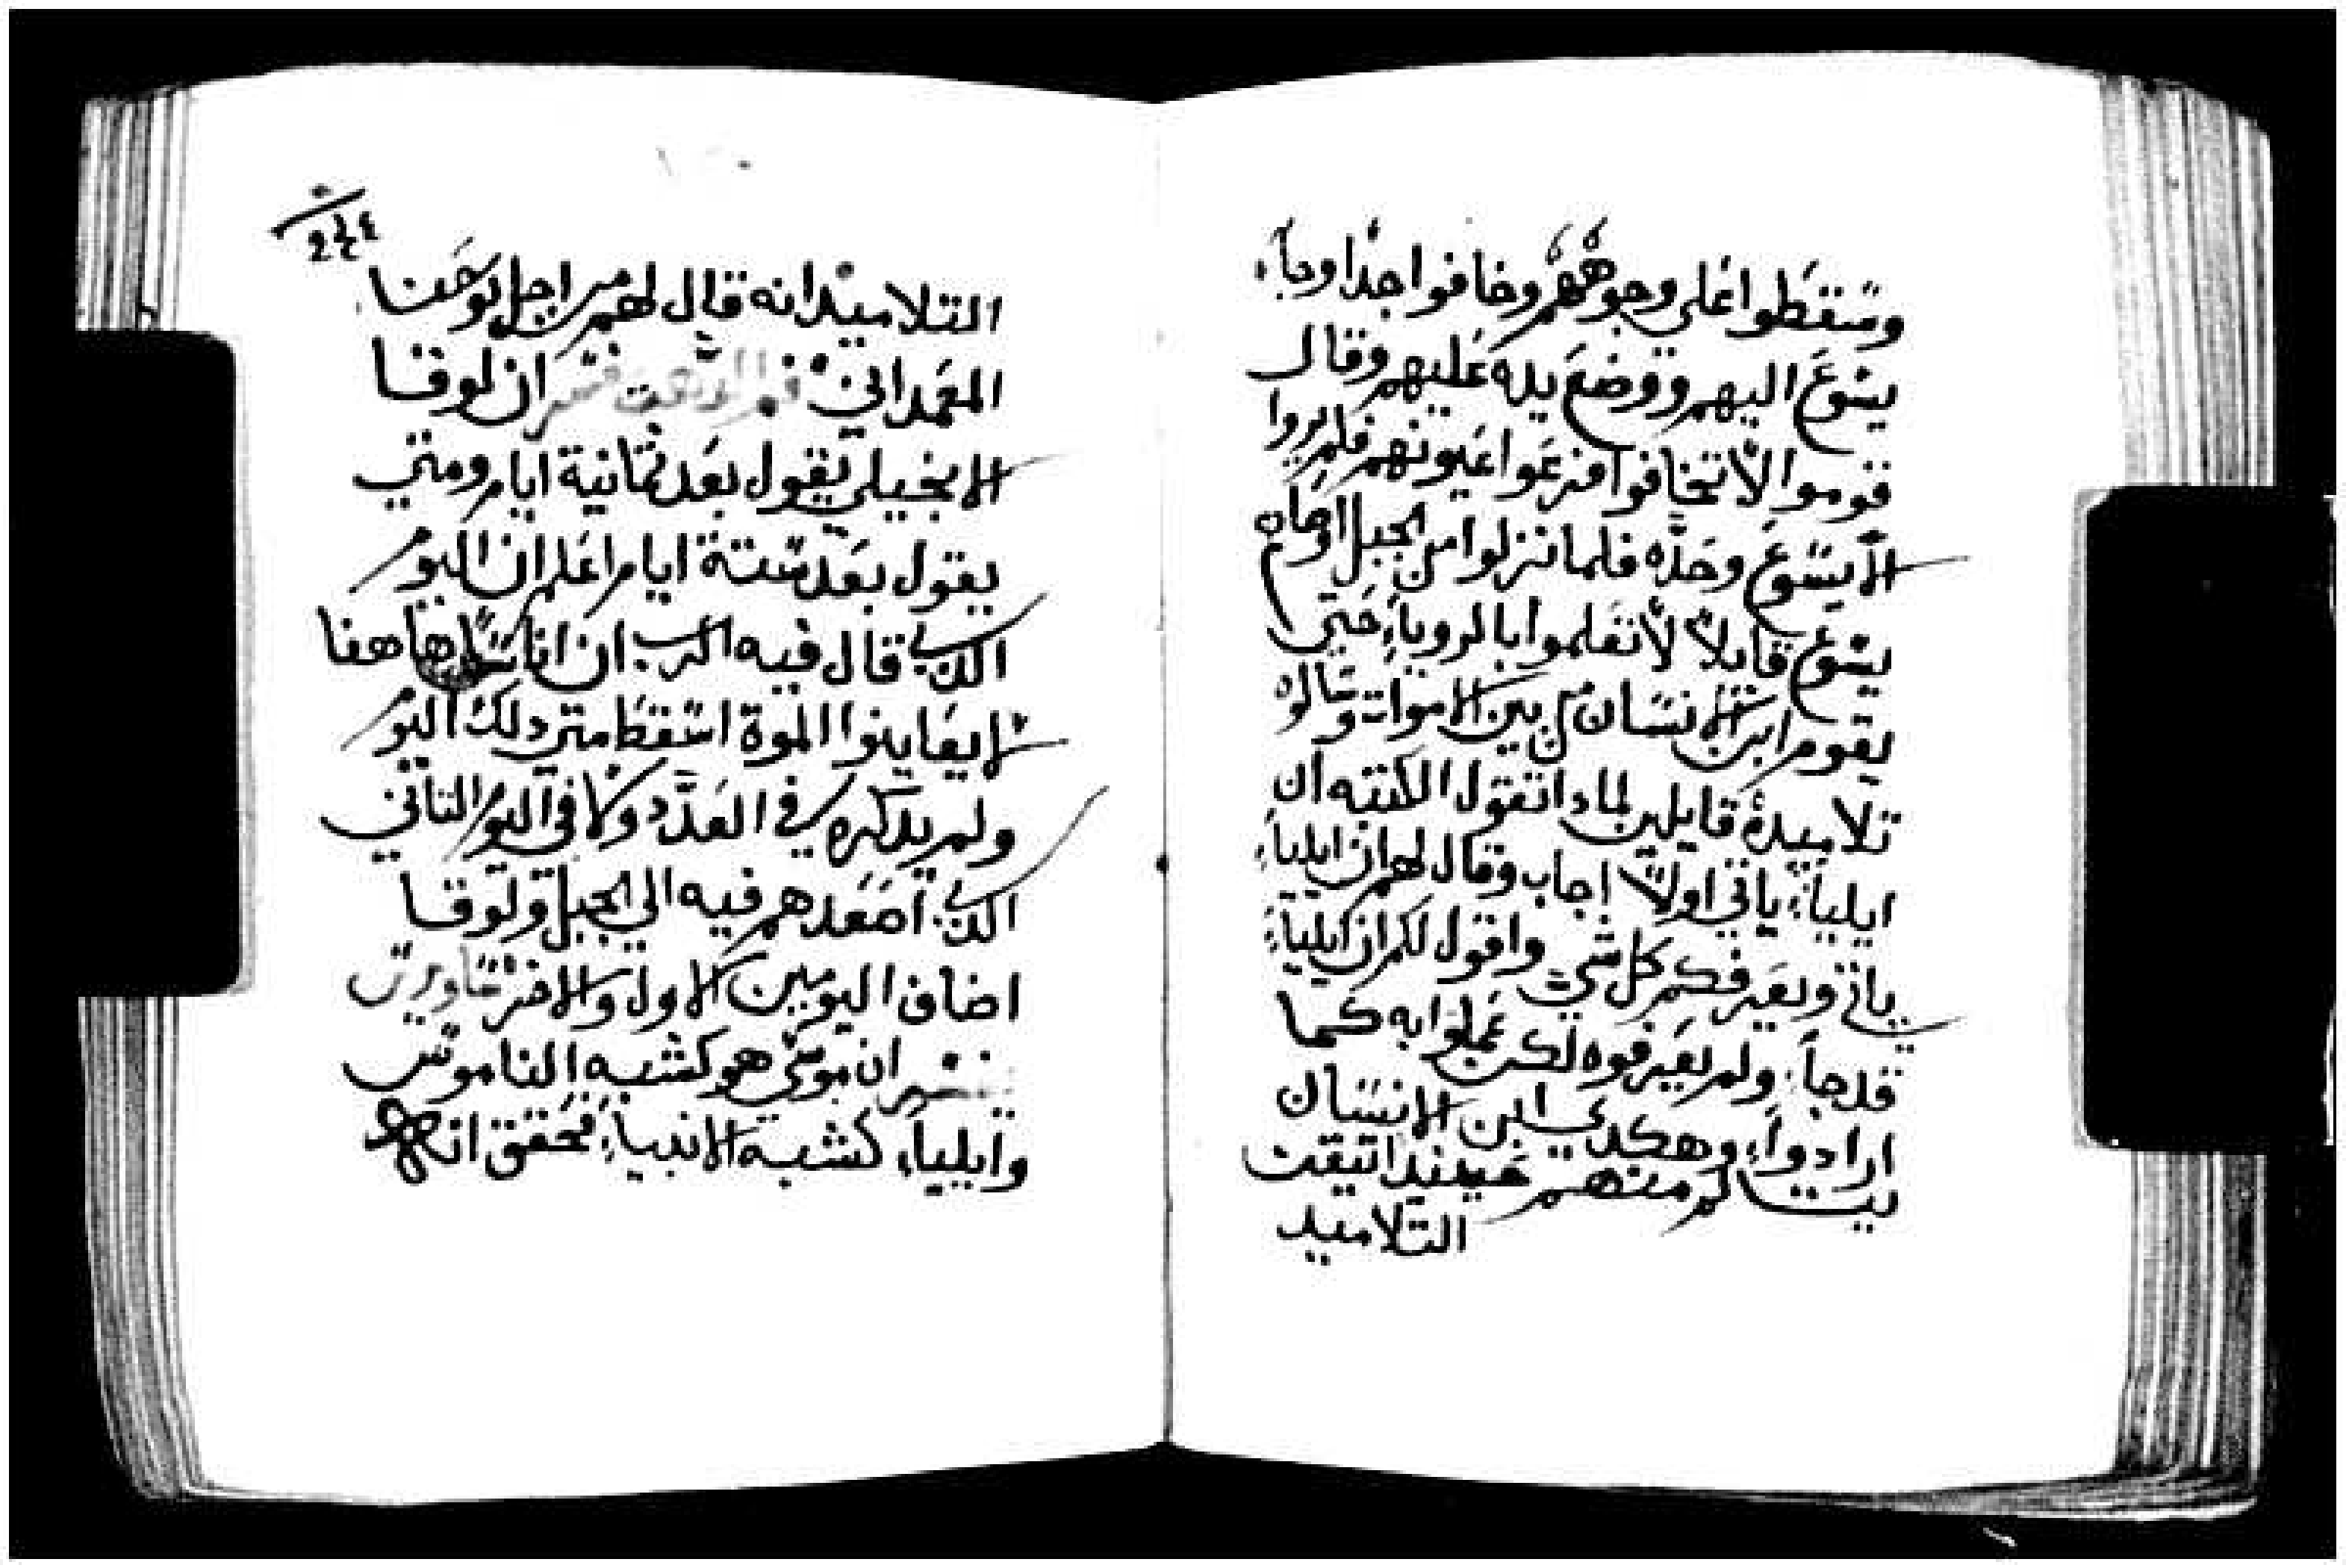 وسقطوا على وجوههم وخافوا جدا وجاء
يسوع اليهم ووضع يده عليهم وقال
قوموا لا تخافوا فزعوا عيونهم فلم يروا
الا يسوع وحده فلما نزلوا من الجبل اوصاهم
يسوع قايلا لا تعلموا بالروياء حتي
يقوم ابن الانسان من بين الاموات وسالوه
تلاميده قايلين لمادا تقول الكتبه ان
ايلياء ياتي اولا اجاب وقال لهم ان ايلياء
ياتي ويعرفكم كل شي واقول لكم ان ايلياء
قد جاء ولم يعرفوه لكن عملوا به كما
ارادوا وهكدي ابن الانسان
يتالم منهم حينيد اتيقنت
التلاميد
٢٤٤
التلاميد انه قال لهم من اجل يوحنا
المعمداني تفسير ان لوقا
الانجيلي يقول بعد ثمانية ايام ومتي
يقول بعد ستة ايام اعلم ان اليوم
الدي قال فيه الرب ان اناسا هاهنا
لا يعاينوا الموة اسقط متي دلك اليوم
ولم يدكره في العدد ولا في اليوم التاني
الدي اصعدهم فيه الي الجبل ولوقا
اضاف اليومين الاول والاخر
ان موسي هو كشبه الناموس
وايلياء كشبه الانبياء فحقق انه